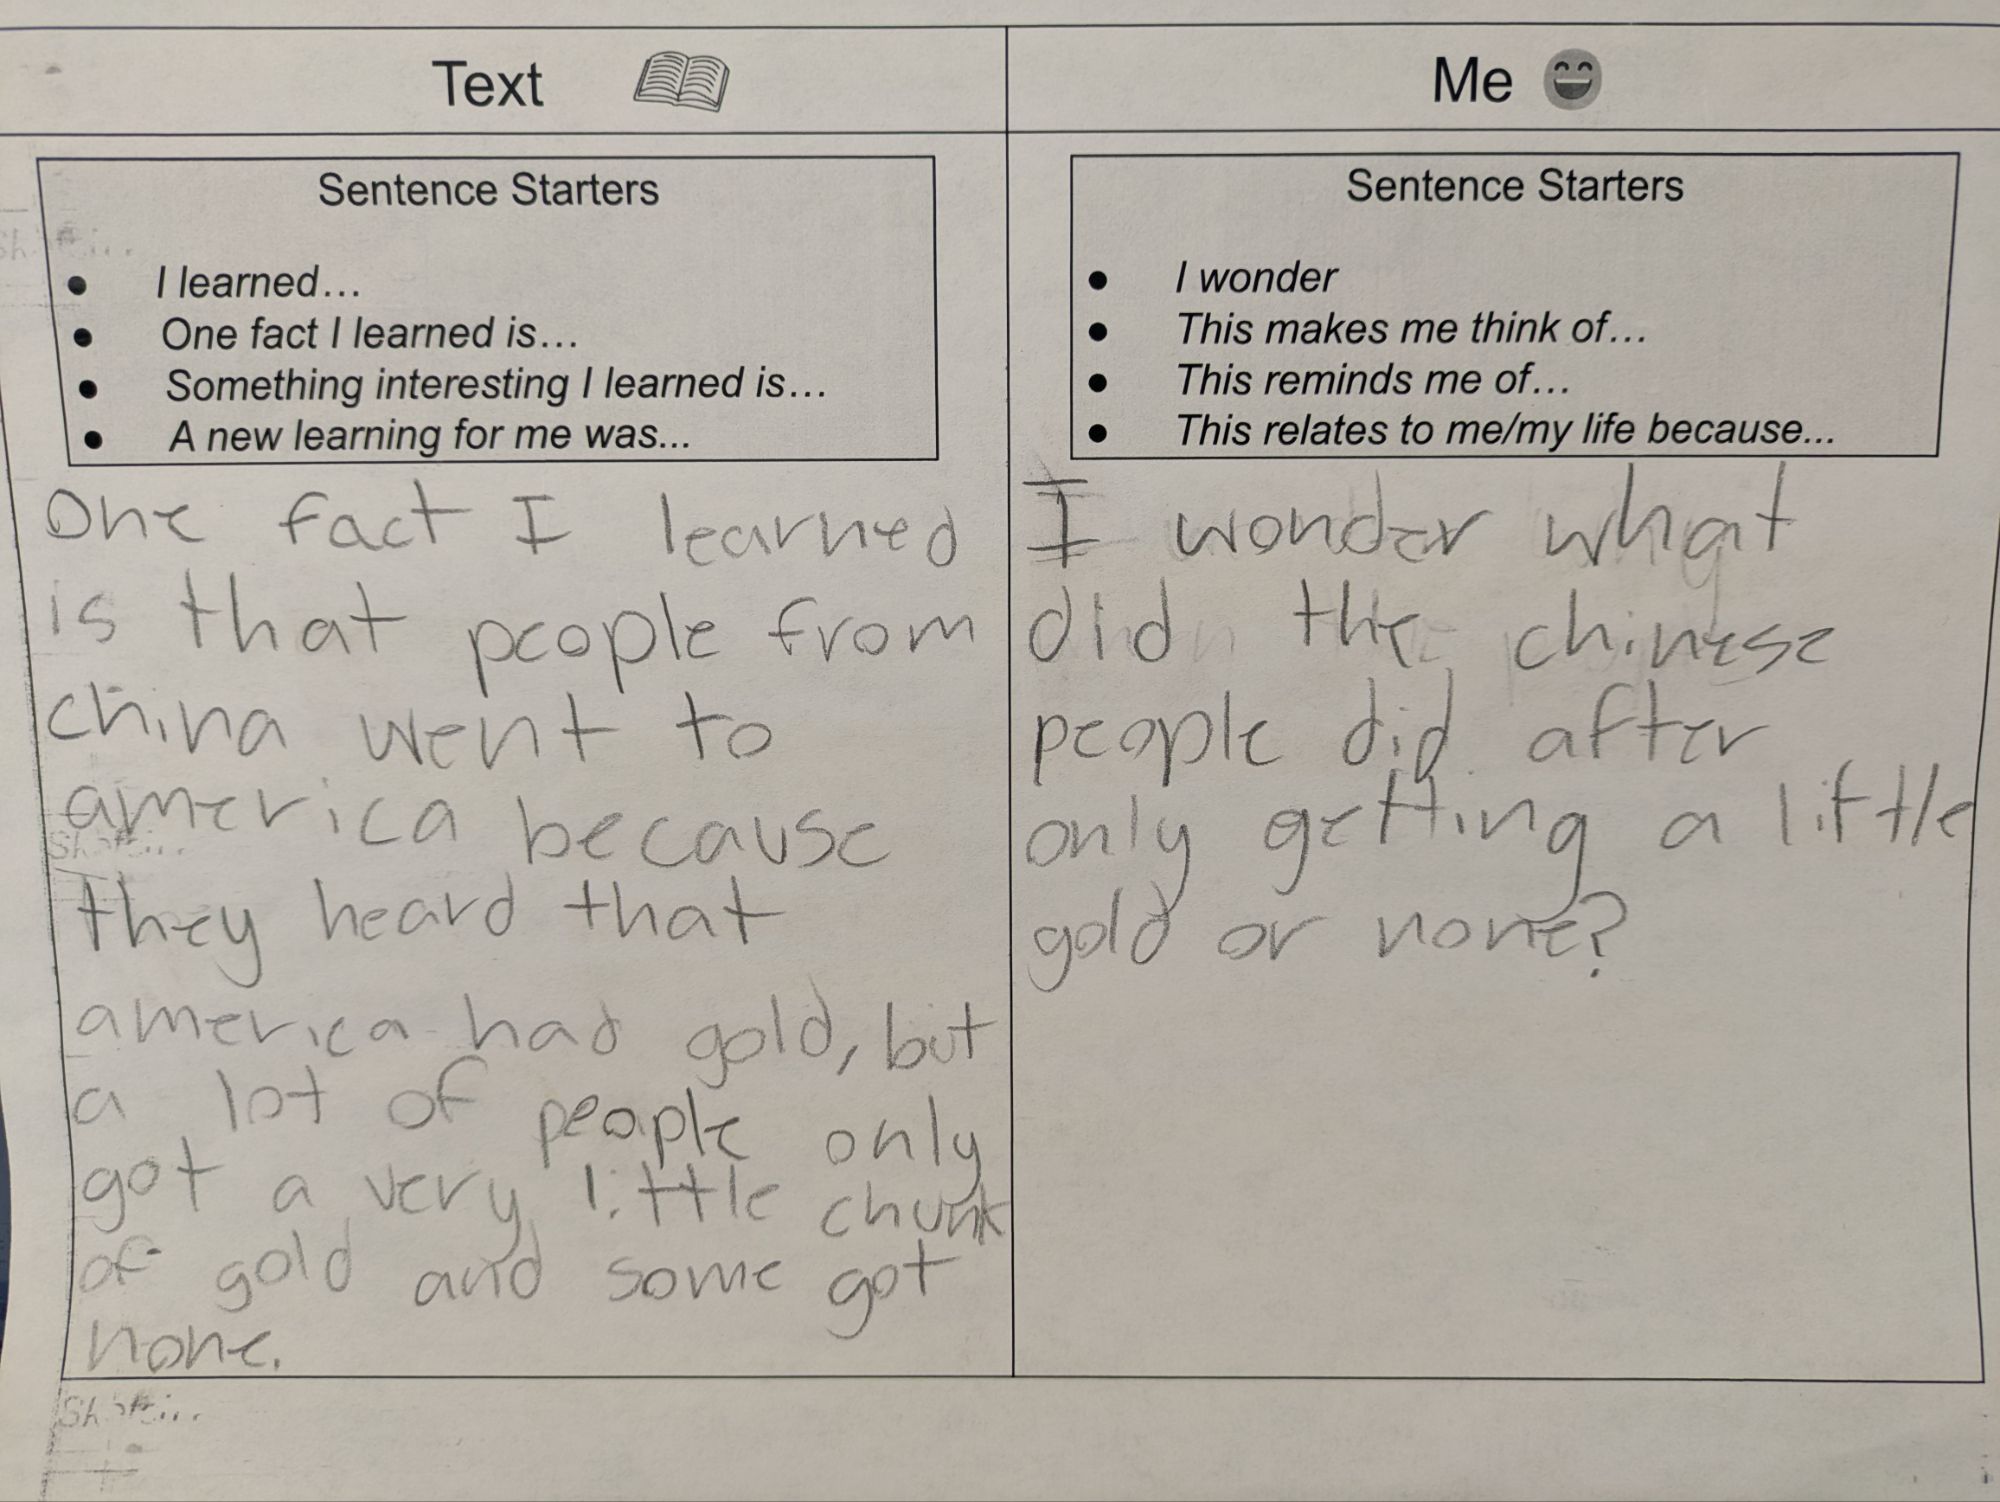 Text
Sentence Starters
I learned...
One fact I learned is...
Something interesting I learned is...
A new learning for me was...
One fact I learned
is that people from
china went to
america because
they heard that
america had gold, but
a lot of people only
got a very little chunk
of gold and some got
none.
Me
Sentence Starters
I wonder
This makes me think of...
This reminds me of...
This relates to me/my life because...
I wonder what
did the chinese
people did after
only getting a little
gold or none?